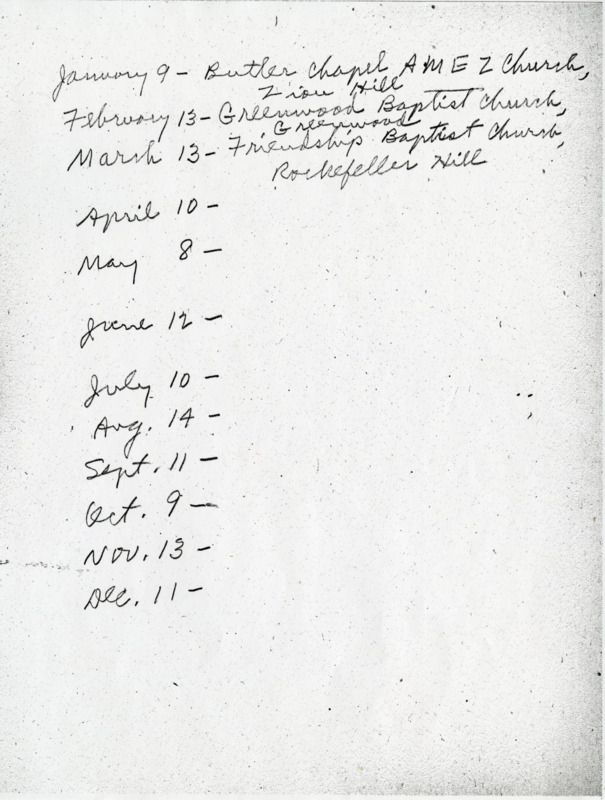 January 9 - Butler Chapel A M E Z Church,
Zion Hill
February 13 - Greenwood Baptist Church,
Greenwood
March 13 - Friendship Baptist Church,
Rockefeller Hill
April 10 -
May 8 -
June 12 -
July 10 -
Aug. 14 -
Sept. 11 -
Oct. 9 -
Nov. 13 -
Dec. 11 -